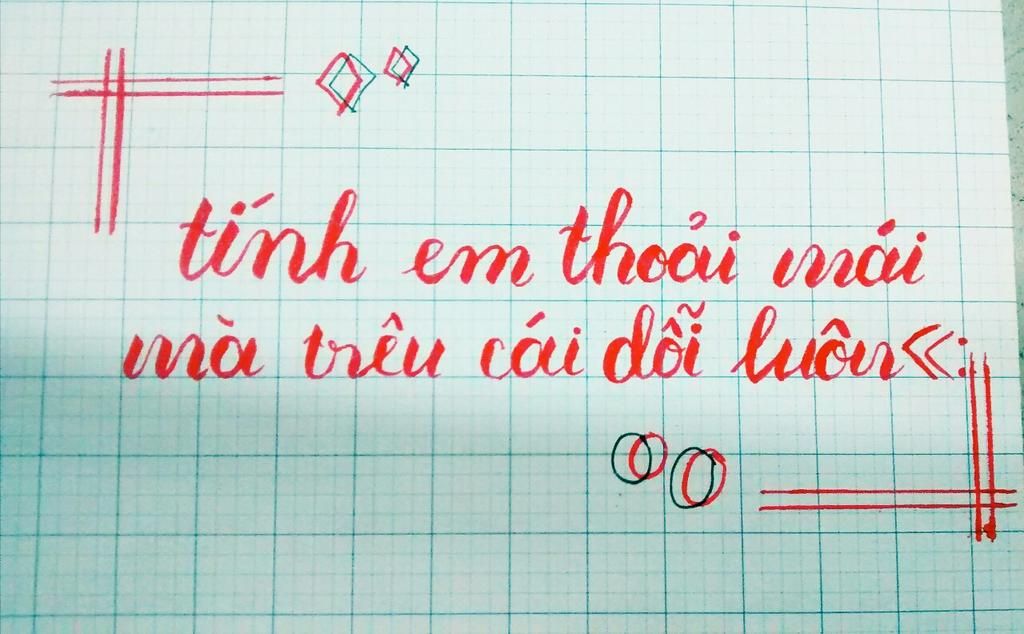 tính em thoải mái
mà trêu cái dỗi luôn«: